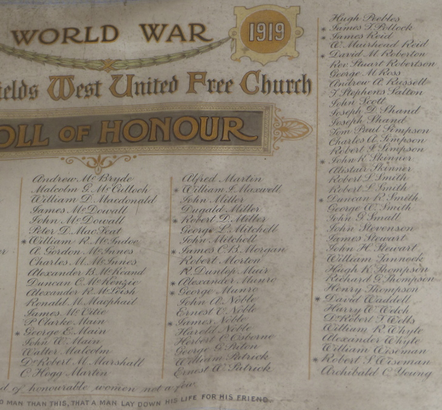 WORLD WAR
1919
ields West United Free Church
OLL OF HONOUR
Andrew McBryde
Malcolm G. McCulloch
William D. Macdonald
James McDowall
John M. McDowall
Peter D. MacFeat
William R. McFadee
A. Gordon McInnes
Charles M. McInnes
Alexander B. McKiand
Duncan C. McKenzie
Alexander R. McLeish
Ronald M. Macphail
James McVitie
P. Clarke Main
George E. Main
John W. Main
Walter Malcolm
Dr Robert M. Marshall
C. Hogg Martin
Alfred Martin
William J. Maxwell
John Miller
Dugald Miller
Robert D. Miller
George L. Mitchell
John Mitchell
James C. B. Morgan
Robert Morton
R. Dunlop Muir
Alexander Munro
George Munro
John A. Noble
Ernest C. Noble
James Noble
Harold Noble
Herbert C. Osborne
George G. Paton
William Patrick
Ernest W. Patrick
Hugh Peebles
James T. Pollock
James Reid
W. Muirhead Reid
David M. Roberton
Rev. Stuart Robertson
George M. Ross
Andrew C. Russell
T. Stephens Salton
John Scott
Joseph D. Shand
Joseph Shand
Tom Paul Simpson
Charles A. Simpson
Robert A. Simpson
John K. Skinner
Alistair Skinner
Robert L. Smith
Robert S. Smith
Duncan C. Smith
George W. Smith
John G. Snall
John Stevenson
James Stewart
John H. Stewart
William Tannock
Hugh K. Thompson
Richard G. Thompson
Henry Thompson
David Waddell
Harry A. Welch
Dr Robert J. Wells
William R. Whyte
Alexander Whyte
William Wiseman
Robert S. Wiseman
Archibald C. Young
d of honourable women not a few
MAN THAN THIS, THAT A MAN LAY DOWN HIS LIFE FOR HIS FRIEND